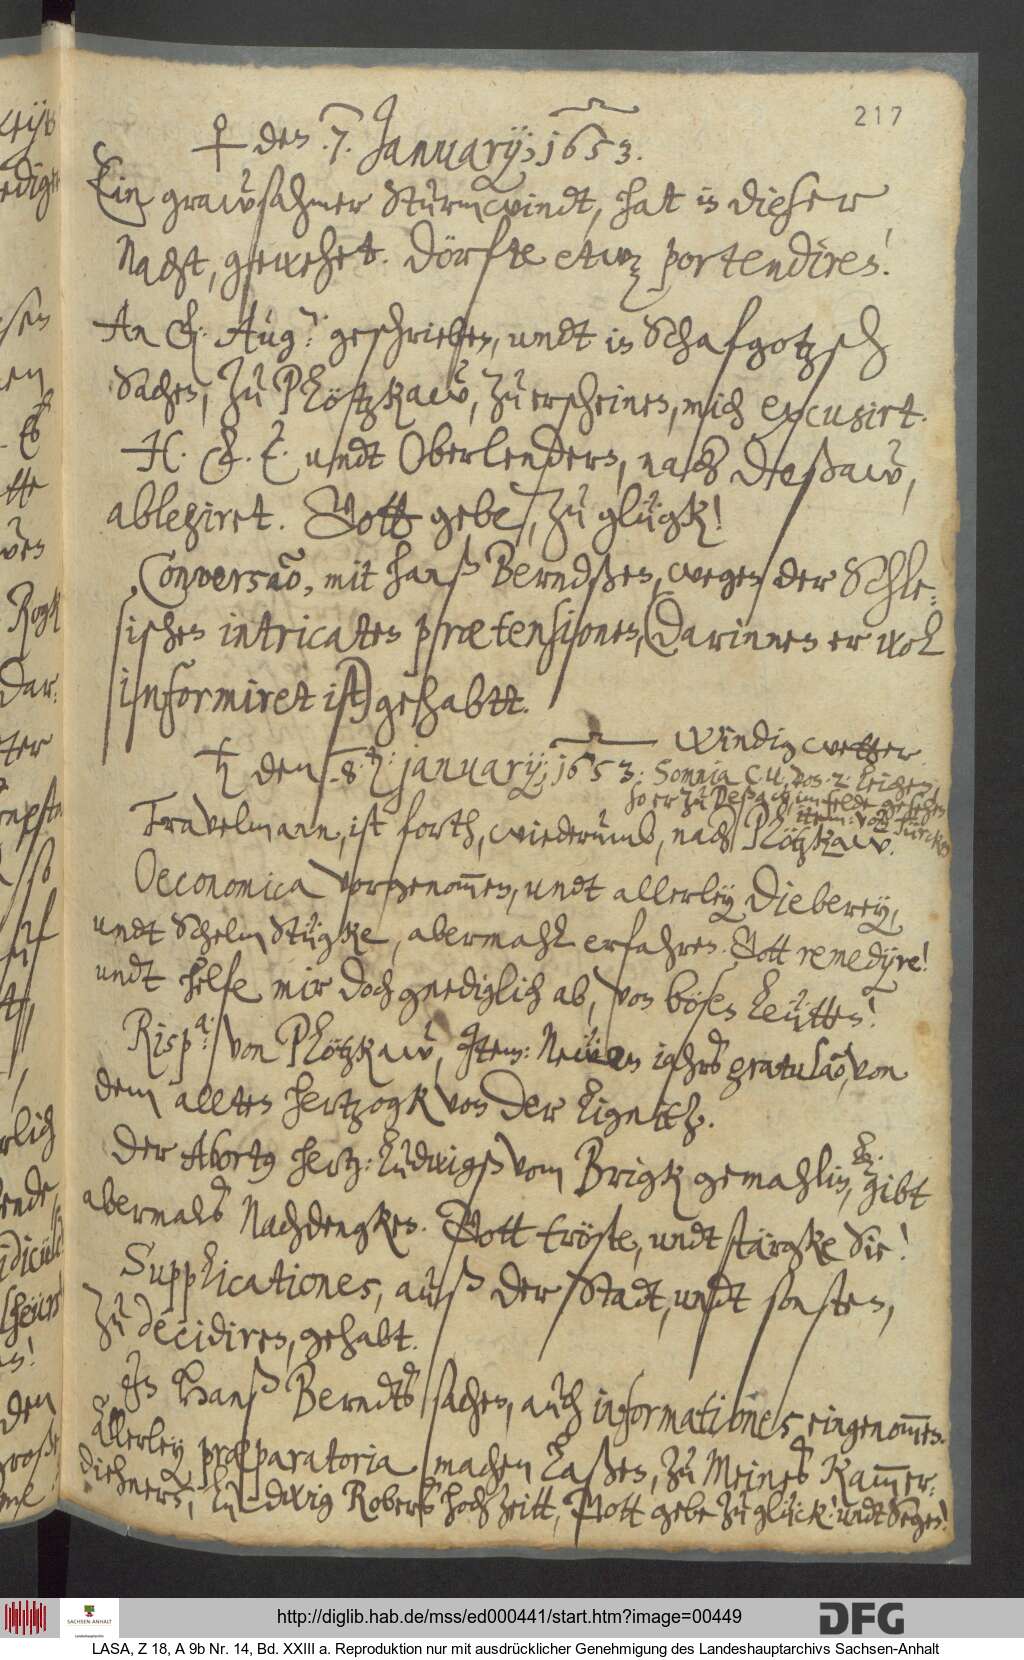 217
♀ den .7. Januarÿ; 1653.
Ein grawsahmer Sturmwindt, hat in dieser
Nacht, gewehet. Dörfte etwz portendiren!
An F. Aug: geschrieben, undt in Schafgotzsch
Sachen, zu Plötzkaw, zu erscheinen, mich excusirt.
undt Oberlendern, nach Deßaw,
ablegiret. Gott gebe, zu glügk!
Conversão, mit Hanß Berndßen, wegen der Schle¬
sischen intricaten prætensionen, (darinnen er wol
informiret ist) gehabtt.
♄ den 8. Januarÿ; 1653. Windig wetter.
Somnia
so er zu Deßaw, im felde gesehen
Item: von Türcken
Travelmann, ist forth, wiederumb, nach Plötzkaw.
Oeconomica vorgenom̅en, undt allerley Dieberey,
undt SchelmStügke, abermahl erfahren. Gott remedÿre!
undt helfe mir doch gnediglich ab, von bösen Leütten!
Risp.a: von Plötzkaw, Item: Neẅen iahrs gratulão, von
dem allten Hertzogk von der Lignitz.
Der Abortus Hertz: Ludwigß vom Brigk gemahlin, gibt
abermals Nachdengken. Gott tröste, undt stärgke Sie!
Supplicationes, auß der Stadt, undt sonsten,
zu decidiren, gehabt.
In Hanß Berndts sachen, auch informationes eingenom̅en.
Allerley præparatoria machen laßen, zu Meines Kam̅er¬
dieners, Ludwig Robers hochzeitt, Gott gebe zu glück! undt Segen!
http://diglib.hab.de/mss/ed000441/start.htm?image=00449
SACHSEN-ANHALT
DFG
LASA, Z 18, A 9b Nr. 14, Bd. XXIII a. Reproduktion nur mit ausdrücklicher Genehmigung des Landeshauptarchivs Sachsen-Anhalt